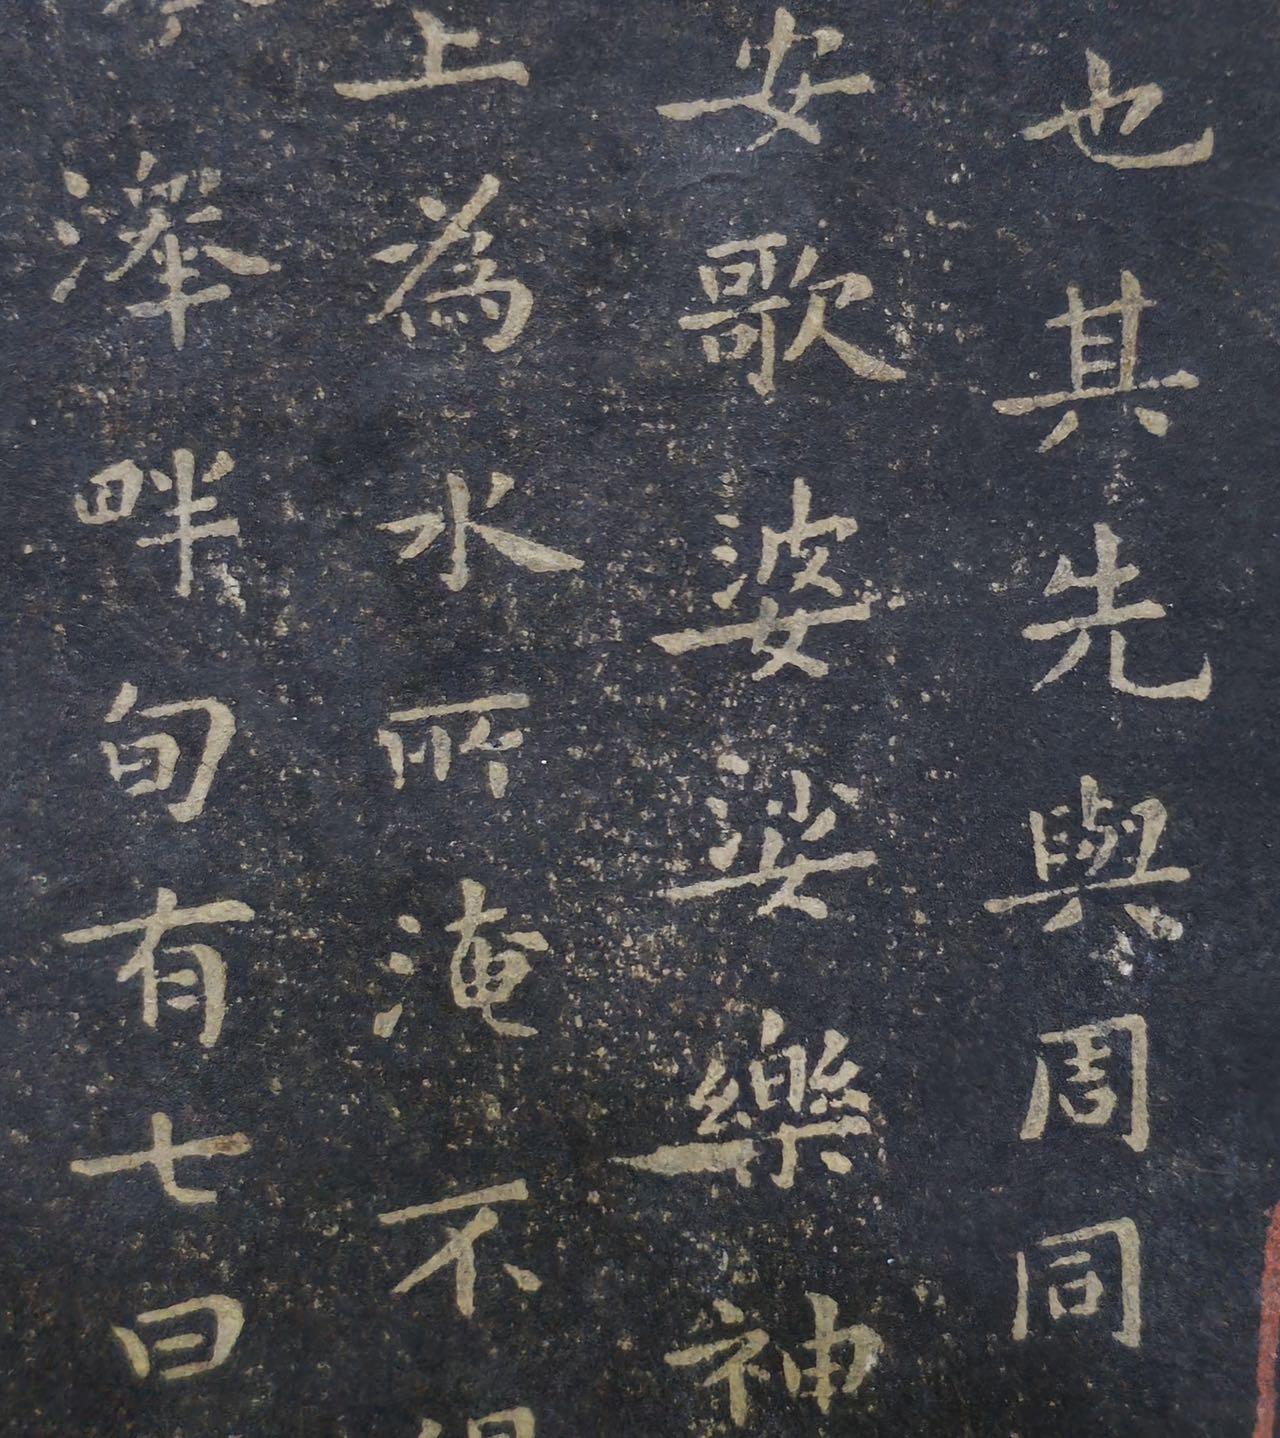 也其先與周同
安歌婆娑樂神
上為水所淹不
澤畔旬有七日